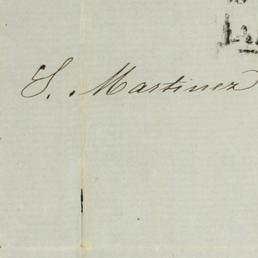 S. Martinez